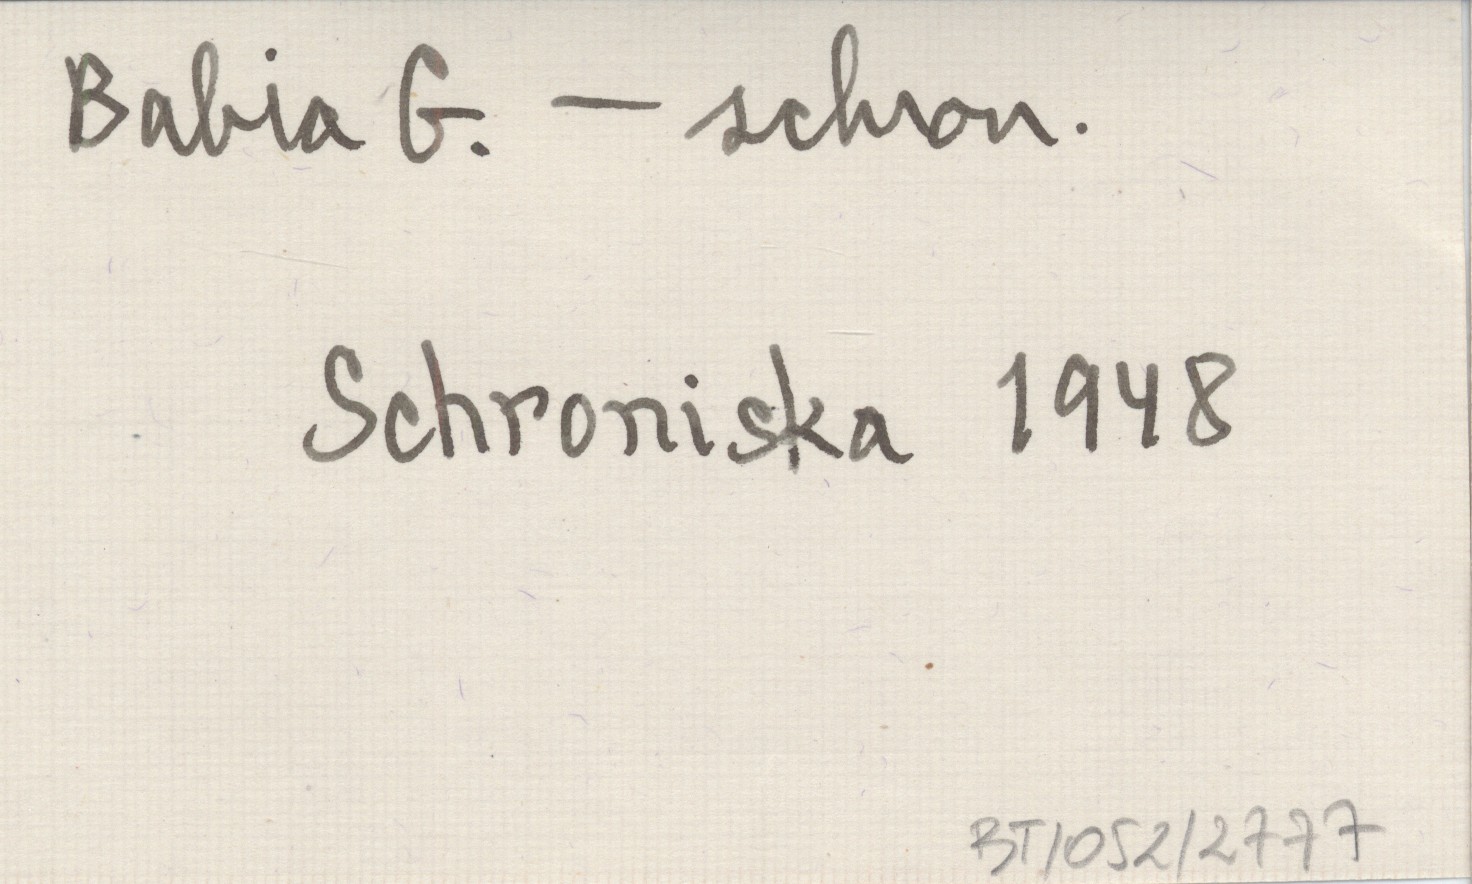 Babia G. — schron.
Schroniska 1948
BT/052/2777